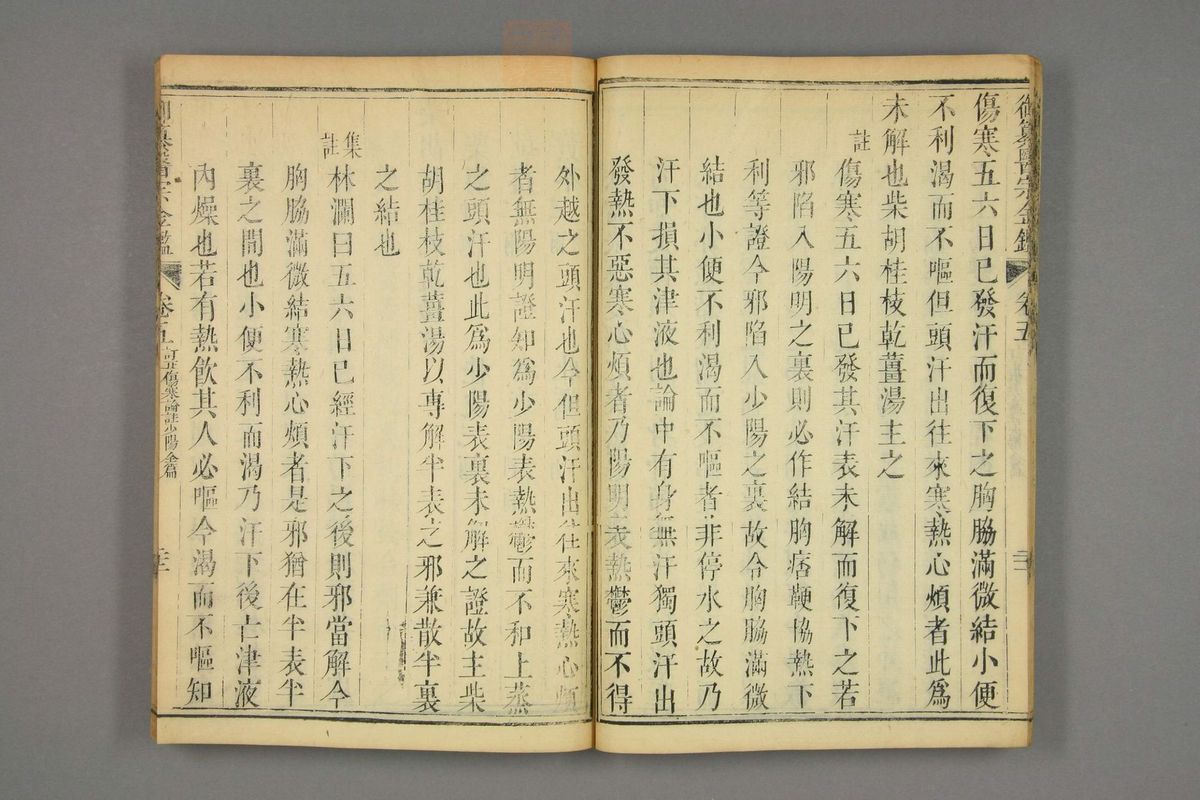 御纂醫宗金鑑 卷五
傷寒五六日已發汗而復下之胸脇滿微結小便
不利渴而不嘔但頭汗出往來寒熱心煩者此爲
未解也柴胡桂枝乾薑湯主之
註傷寒五六日已發其汗表未解而復下之若
邪陷入陽明之裏則必作結胸痞鞕協熱下
利等證今邪陷入少陽之裏故令胸脇滿微
結也小便不利渴而不嘔者非停水之故乃
汗下損其津液也論中有身無汗獨頭汗出
發熱不惡寒心煩者乃陽明表熱鬱而不得
外越之頭汗也今但頭汗出往來寒熱心煩
者無陽明證知爲少陽表熱鬱而不和上蒸
之頭汗也此爲少陽表裏未解之證故主柴
胡桂枝乾薑湯以專解半表之邪兼散半裏
之結也
集註林瀾曰五六日已經汗下之後則邪當解今
胸脇滿微結寒熱心煩者是邪猶在半表半
裏之間也小便不利而渴乃汗下後亡津液
內燥也若有熱飲其人必嘔今渴而不嘔知
御纂醫宗金鑑 卷五 訂正傷寒論註少陽全篇